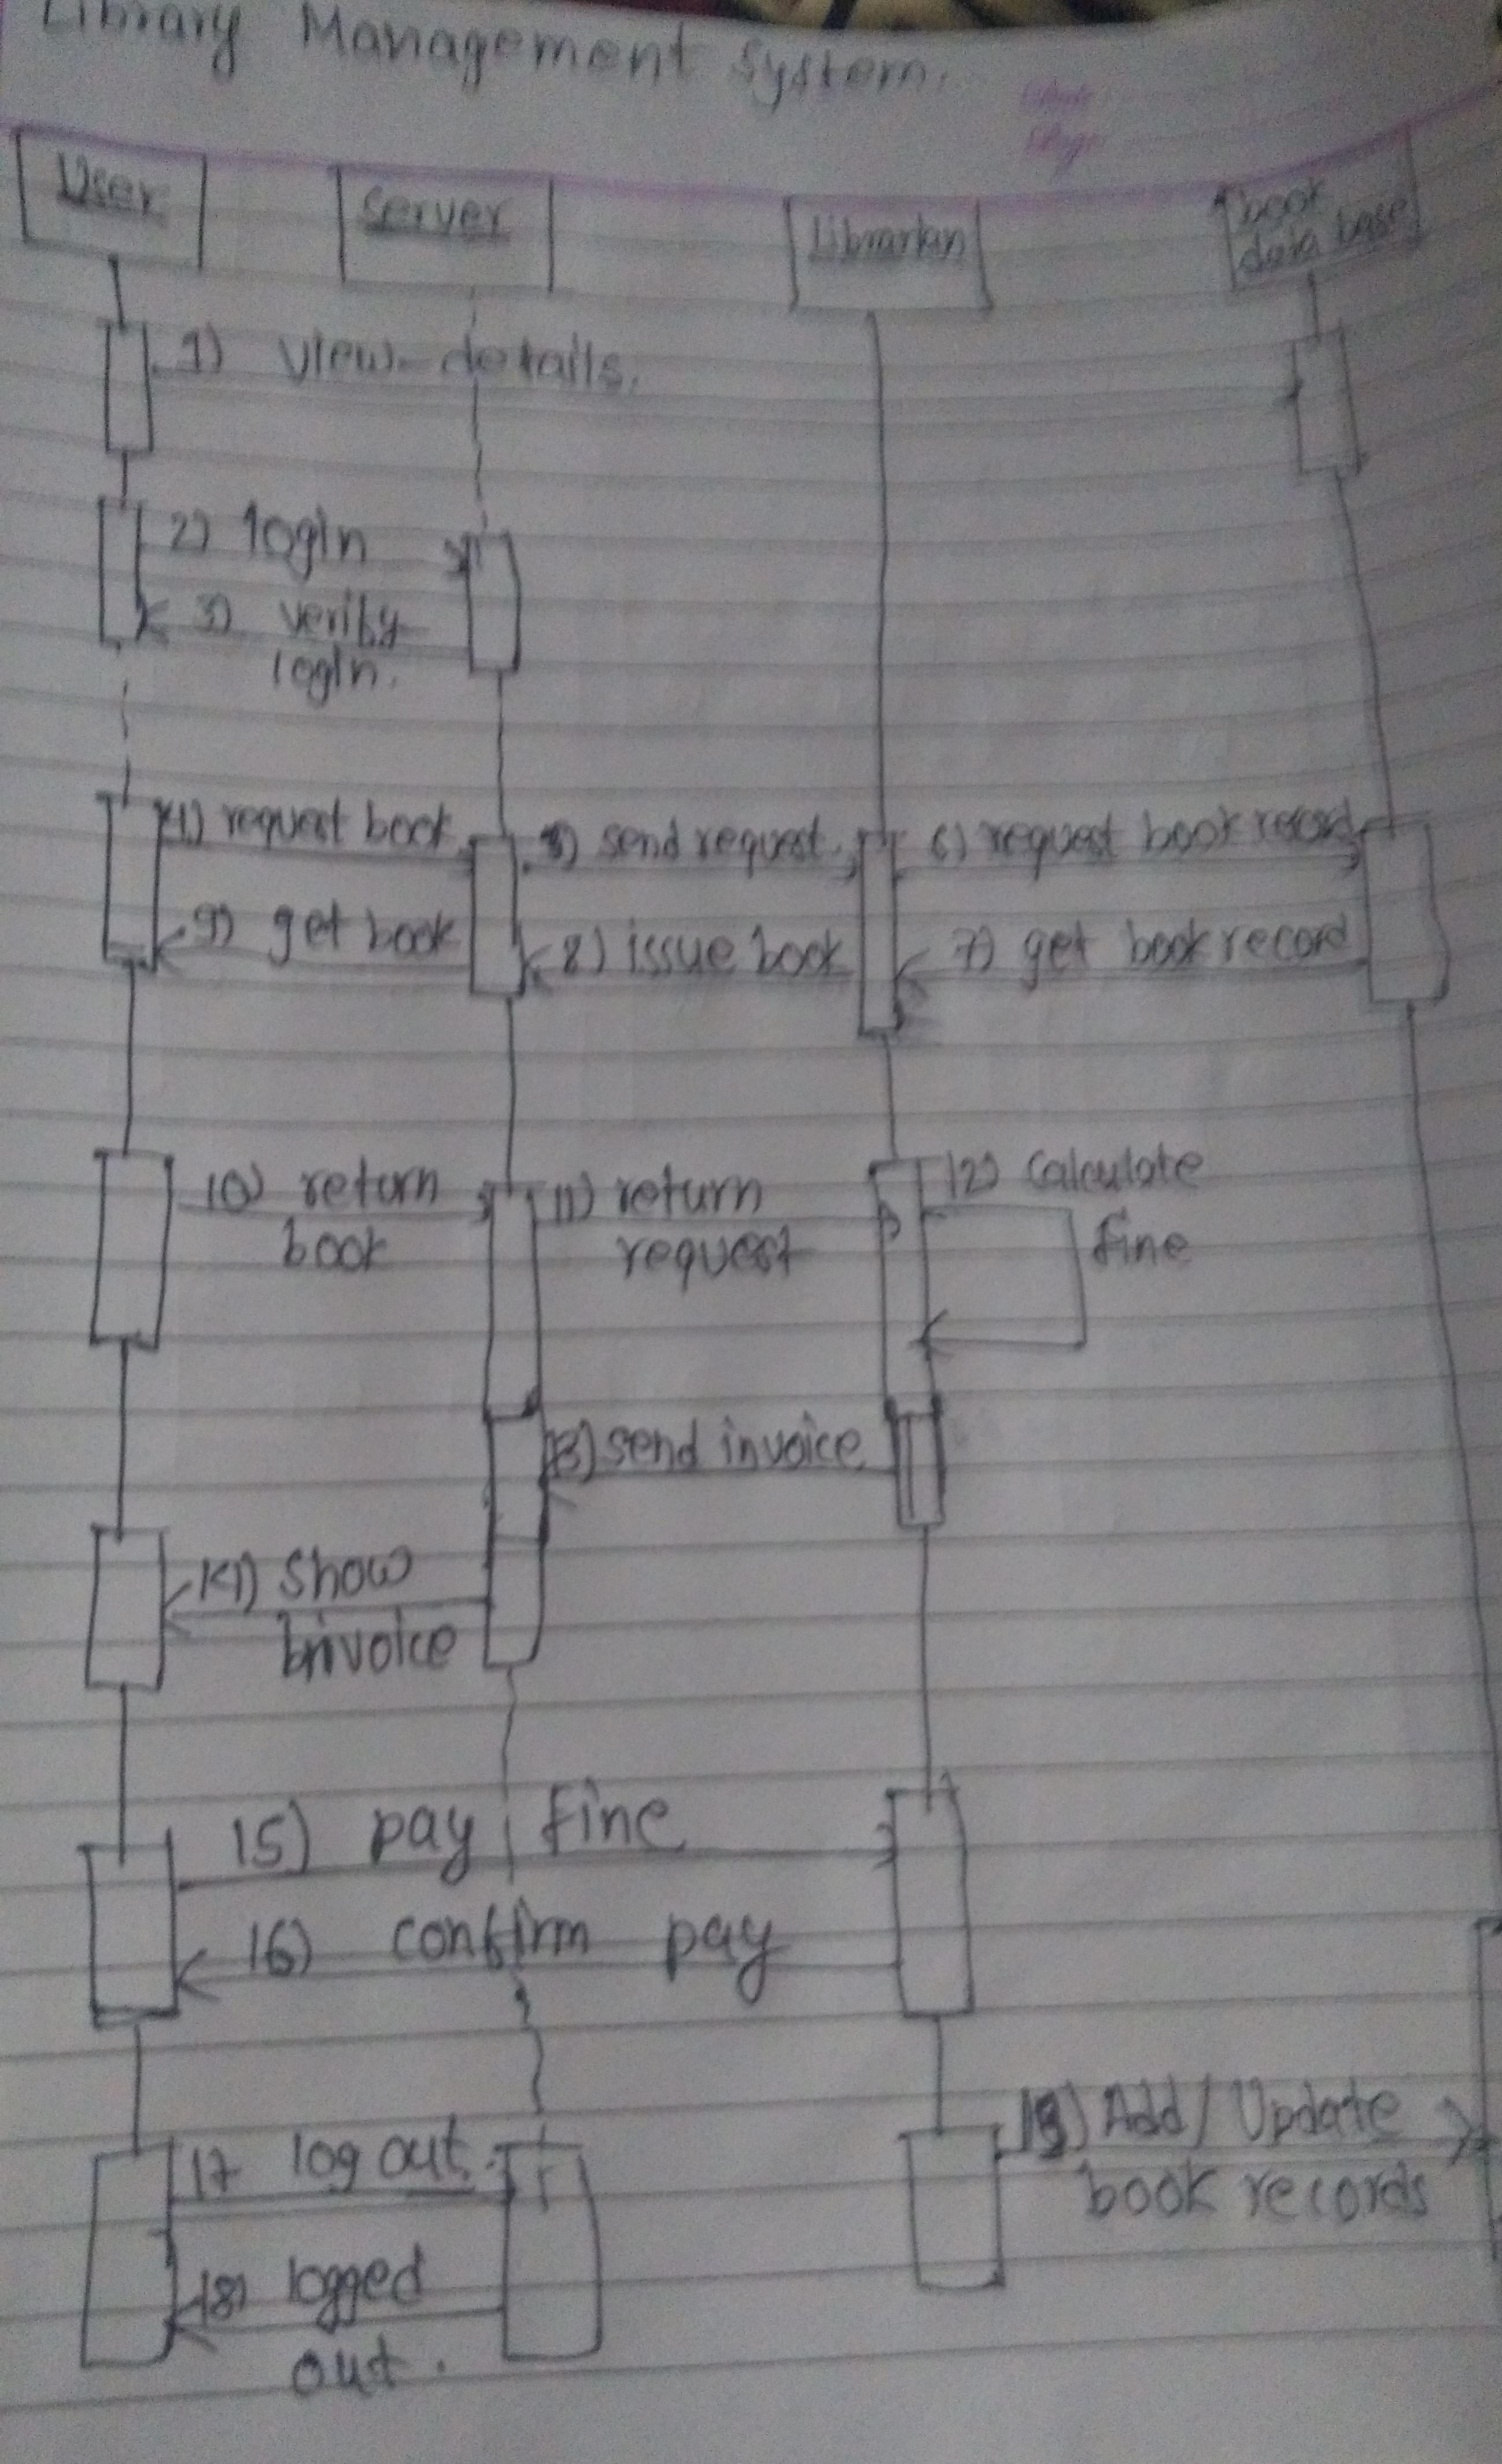 Library Management System.
User
server
Librarian
book
data base
1) view details.
2) login
3) verify
login.
4) request book
5) send request
6) request book record
9) get book
8) issue book
7) get book record
10) return
book
11) return
request
12) Calculate
fine
13) send invoice
14) show
invoice
15) pay fine
16) confirm pay
17 log out.
19) Add / Update
book records
18) logged
out.